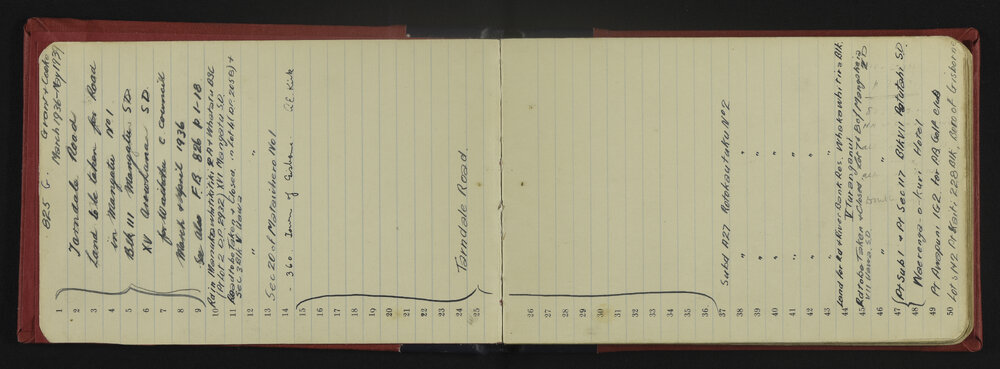 825 G. Grant & Cooke
March 1936 - May 1939
1
2 Tarndale Road
3 Land to be taken for Road
4 in Mangatu No 1
5 Blk III Mangatu S D
6 XV Arowhana S D.
7 for Waikohu C Council
8 March & April 1936
9 See also F.B. 826 p 1-18
10
(Pt Lot 2 D.P. 2922) XVI Mangatu S.D.
11 Road to be Taken & Closed in Lot
Sec 3 Blk V Uawa
12 "
13 Sec 20 of Matawhero No 1
14 - 360 Town of Gisborne
15
16
17
18
19
20
21
22
23
24 Tarndale Road.
25
26
27
28
29
30
31
32
33
34
35
36
37 Subd A27 Repokautuku No 2
38 " "
39 " "
40 " "
41 " "
42 " "
43 "
44 Land for Rd & River Bank Res. Whakawhitira Blk.
V Turanganui
45 Rd to be Taken & Closed Lot 7 & 8 of Mangaheia
VII Uawa S.D. 2D
46 " "
47 Pt Sub 1 & Pt Sec 117 Blk VII Patutahi S.D.
48 Waerenga-o-kuri Hotel
49 Pt Awapuni 1G2 for P.B. Golf Club
50 Lot 5 142 Pt Kaiti 228 Blk, Boro of Gisborne